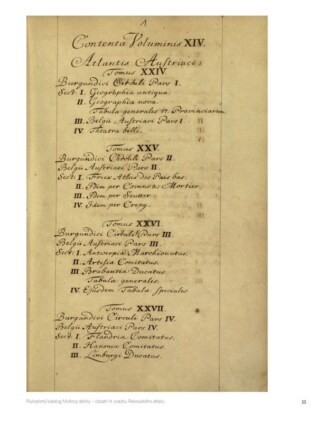 Contenta Voluminis XIV.
Atlantis Austriaci
Tomus XXIV
Burgundici Circuli Pars I.
Sect. I. Geographia antiqua
II. Geographia nova.
Tabula generales 17. Provinciarum
III. Belgii Austriaci Pars I.
IV. Theatra belli.
Tomus XXV.
Burgundici Circuli Pars II.
Belgii Austriaci Pars II.
Sect: I. Friex Atlas des Pais bas.
II. Idem per Covens et Mortier.
III. Idem per Seutter
IV. Idem per Crepy.
Tomus XXVI
Burgundici Circuli Pars III
Belgii Austriaci Pars III.
Sect: I. Antverpia Marchionatus.
II. Artesia Comitatus.
III. Brabantia Ducatus
Tabula generales.
IV. Ejusdem Tabula speciales
Tomus XXVII
Burgundici Circuli Pars IV.
Belgii Austriaci Pars IV.
Sect: I. Flandria Comitatus.
II. Hanonia Comitatus.
III. Limburgi Ducatus.
33